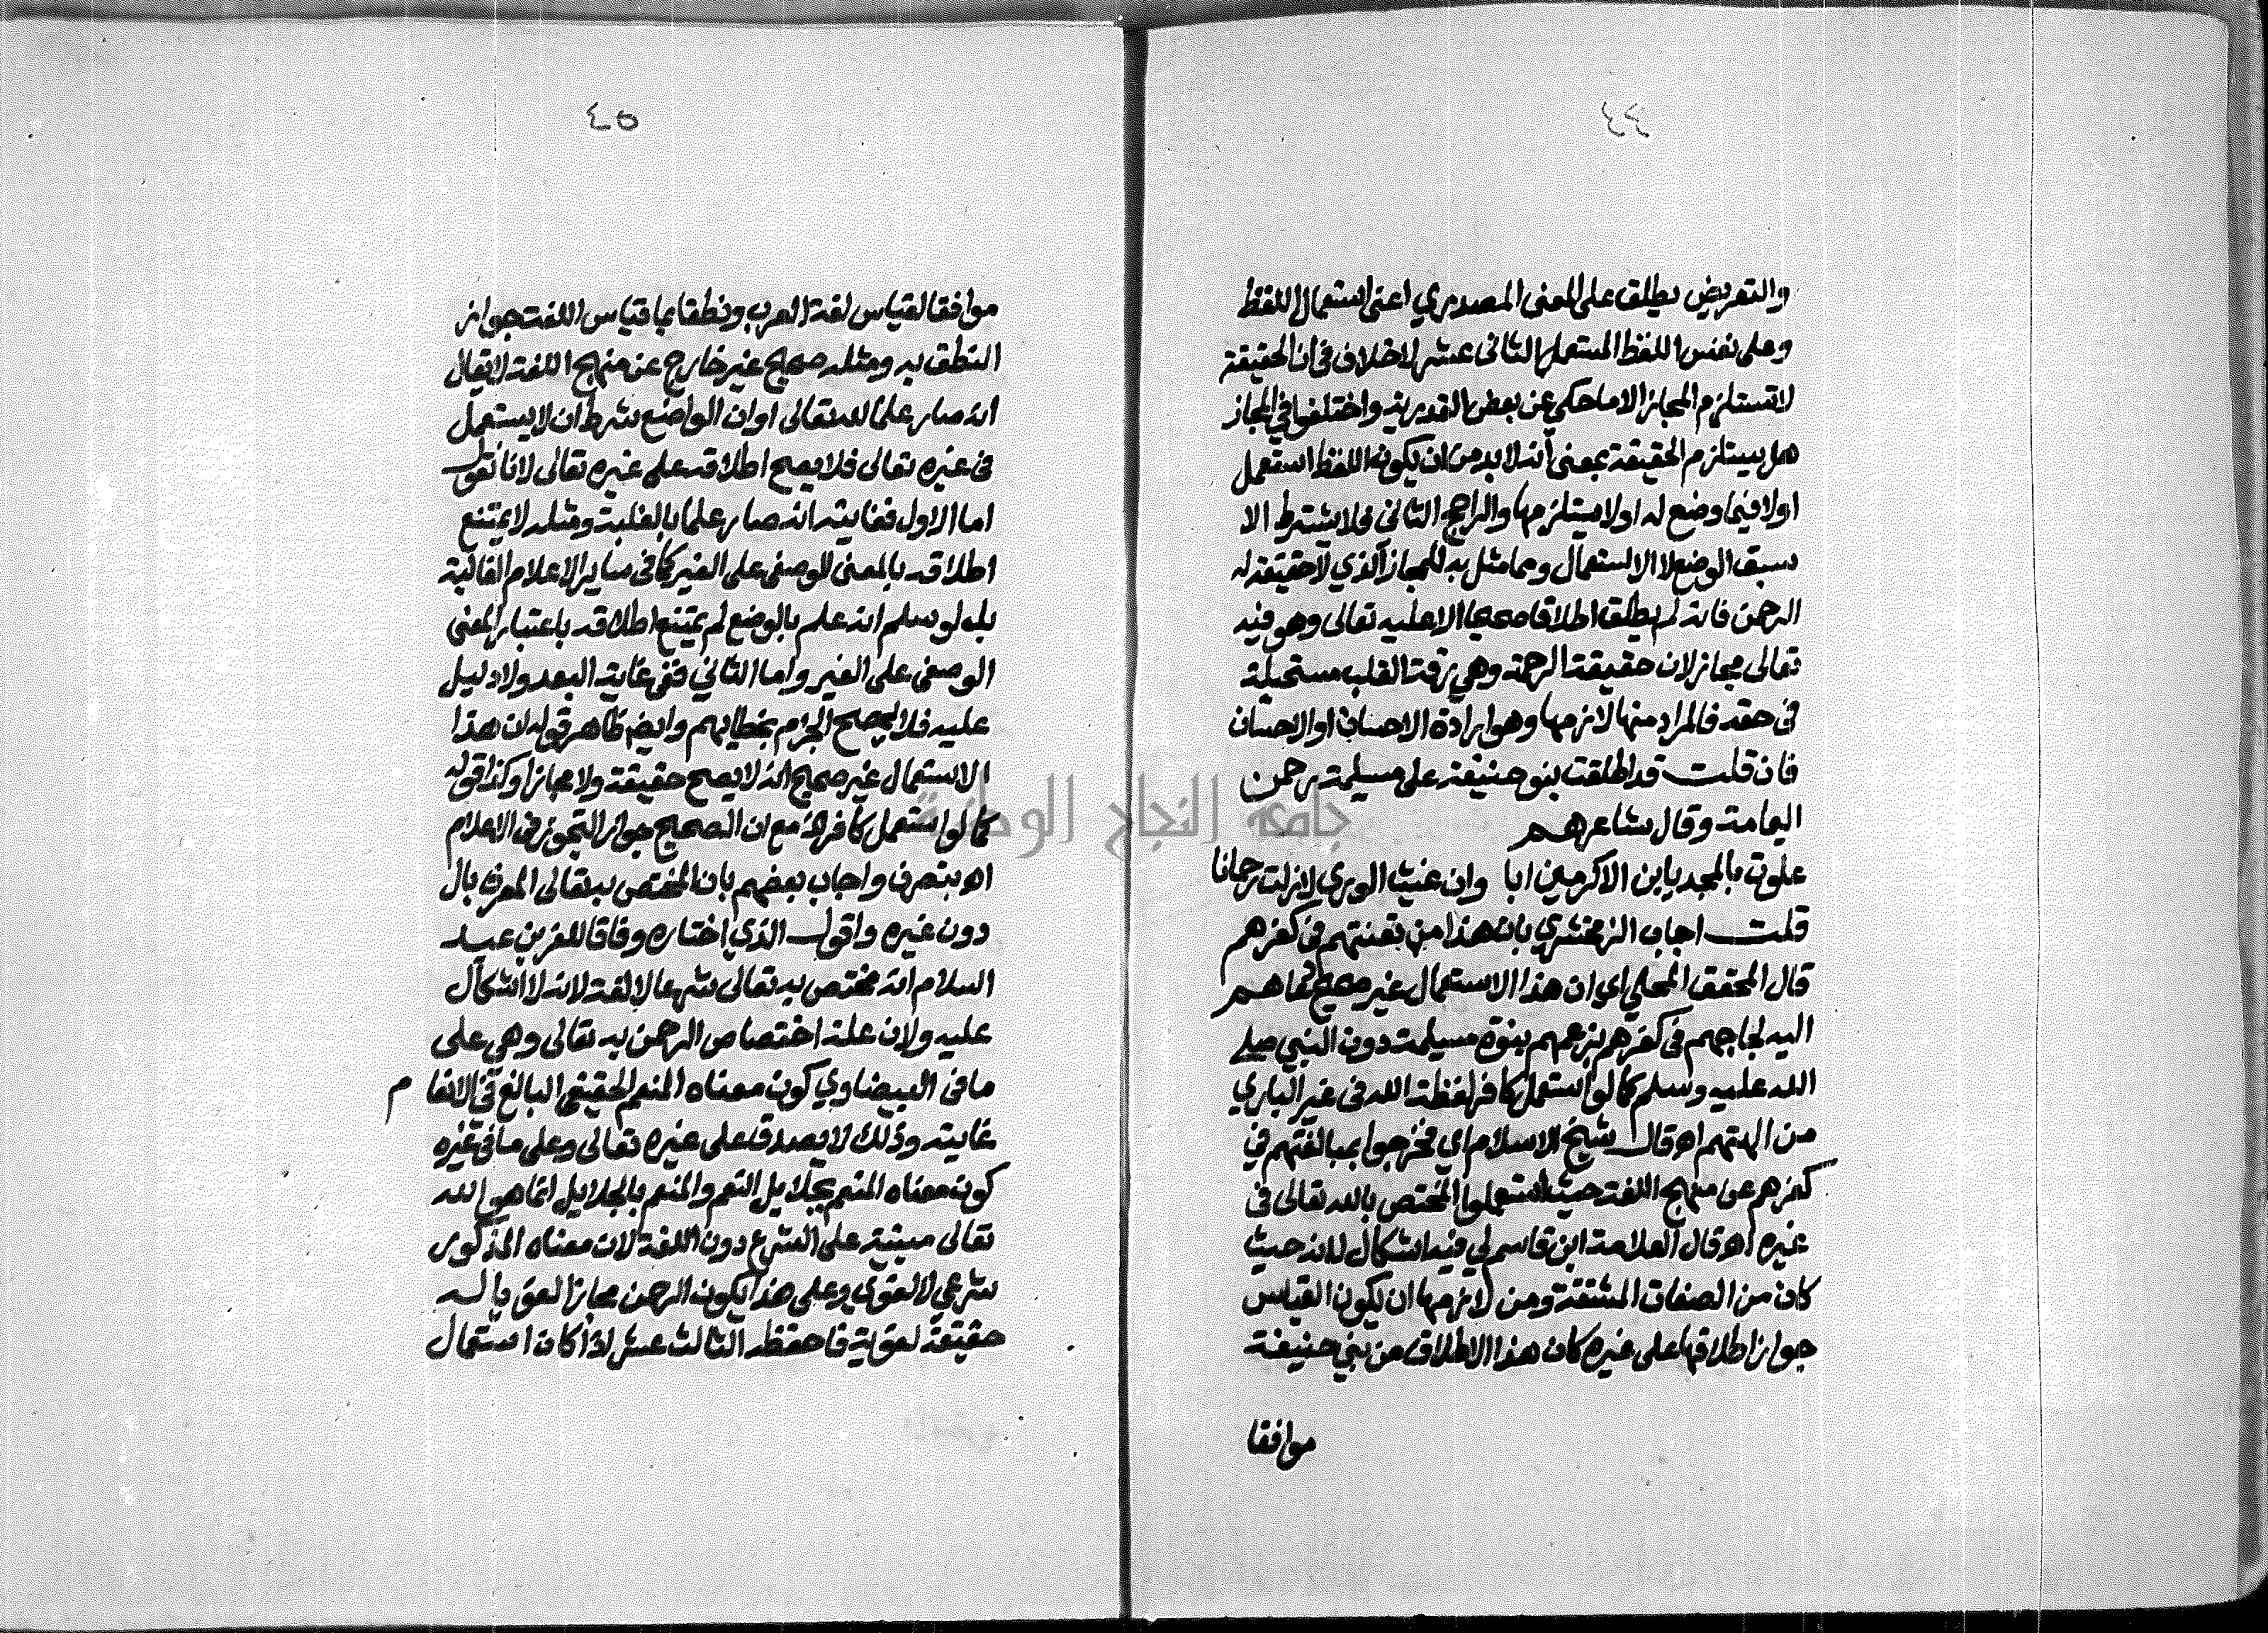 والتعريض يطلق على المعنى المصدري اعنى استعمال اللفظ
وعلى نفس اللفظ المستعمل الثانى عشر لا خلاف فى ان الحقيقة
لا تستلزم المجاز الا ما حكي عن بعض القدرية واختلفوا في المجاز
هل يستلزم الحقيقة بمعنى أنه لابد من ان يكون اللفظ استعمل
اولا فيما وضع له او لا يستلزمها والراجح الثانى فلا يشترط الا
سبق الوضع لا الاستعمال ومما مثل به للمجاز الذي لا حقيقة له
الرحمن فانه لم يطلق اطلاقا صحيحا الا عليه تعالى وهو فيه
تعالى مجاز لان حقيقة الرحمة وهي رقة القلب مستحيلة
فى حقه فالمراد منها لازمها وهو ارادة الاحسان او الاحسان
فان قلت قد اطلقت بنو حنيفة على مسيلمة رحمن
اليمامة وقال شاعرهم
علوت بالمجد يا ابن الاكرمين ابا وان غيث الورى لازلت رحمانا
قلت اجاب الزمخشري بان هذا من تعنتهم فى كفرهم
قال المحقق المحلي اي ان هذا الاستعمال غير صحيح دعاهم
اليه لجاجهم فى كفرهم بزعمهم بنوة مسيلمة دون النبي صلى
الله عليه وسلم كما لو استعمل كافر لفظة الله فى غير الباري
من الهتهم اه قال شيخ الاسلام اي فخرجوا بمبالغتهم في
كفرهم عن منهج اللغة حيث استعملوا المختص بالله تعالى فى
غيره اه قال العلامة ابن قاسم لي فيه اشكال لانه حيث
كان من الصفات المشتقة ومن لازمها ان يكون القياس
جواز اطلاقها على غيره كان هذا الاطلاق من بني حنيفة
موافقا
موافقا لقياس لغة العرب ونطقا بما قياس اللغة جواز
النطق به ومثله صحيح غير خارج عن منهج اللغة لا يقال
انه صار علما لله تعالى او ان الواضع شرط ان لا يستعمل
فى غيره تعالى فلا يصح اطلاقه على غيره تعالى لانا نقول
اما الاول فغايته انه صار علما بالغلبة ومثله لا يمتنع
اطلاقه بالمعنى الوصفى على الغير كما فى ساير الاعلام الغالبة
بل لو سلم انه علم بالوضع لم يمتنع اطلاقه باعتبار المعنى
الوصفى على الغير واما الثاني ففى غاية البعد ولا دليل
عليه فلا يصح الجزم بخطايهم وايض ظاهر قوله ان هذا
الاستعمال غير صحيح انه لا يصح حقيقة ولا مجازا وكذا قوله
كما لو استعمل كافر الخ مع ان الصحيح جواز التجوز فى الاعلام
اه بتصرف واجاب بعضهم بان المختص به تعالى المعرف بال
دون غيره واقول الذي اختاره وفاقا للعز بن عبد
السلام انه مختص به تعالى شرعا لا لغة لانه لا اشكال
عليه ولان علة اختصاص الرحمن به تعالى وهي على
ما فى البيضاوي كون معناه المنعم الحقيقى البالغ فى الانعام
غايته وذلك لا يصدق على غيره تعالى وعلى ما فى غيره
كون معناه المنعم بجلايل النعم والمنعم بالجلايل انما هو الله
تعالى مبنية على الشرع دون اللغة لان معناه المذكور
شرعي لا لغوي وعلى هذا يكون الرحمن مجازا لغويا له
حقيقة لغوية فاحفظه الثالث عشر اذا كان استعمال
جامعة النجاح الوطنية